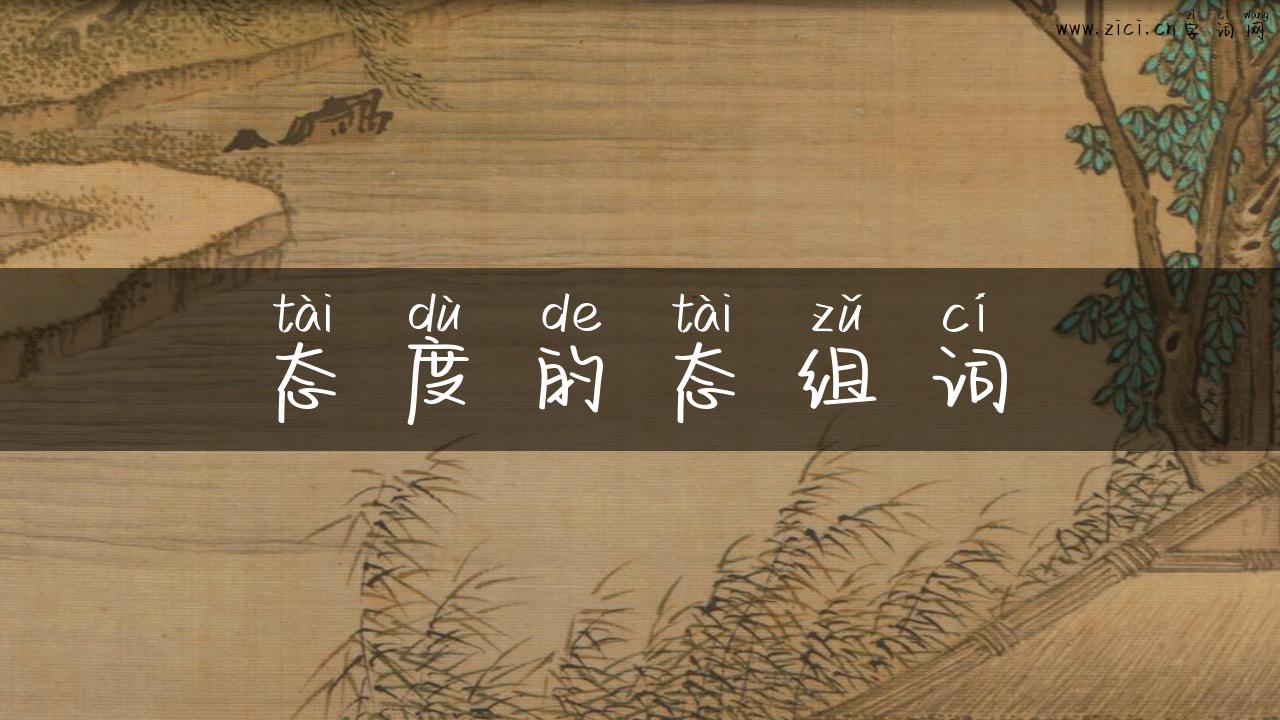 zì cí wǎng
www.zici.cn 字词网
tài dù de tài zǔ cí
态度的态组词